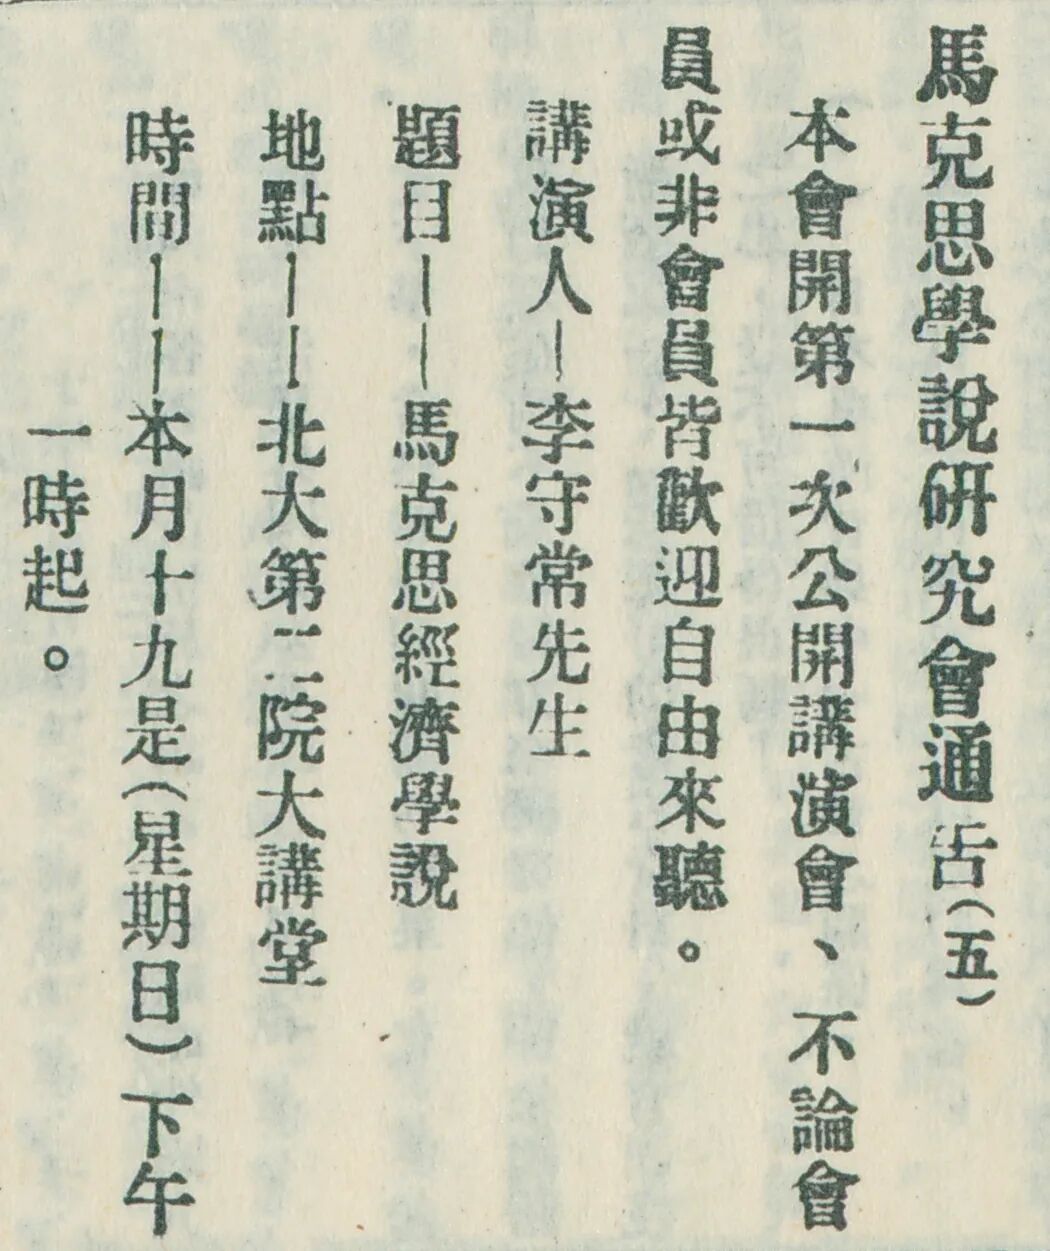 馬克思學說研究會通吿(五)
本會開第一次公開講演會、不論會
員或非會員皆歡迎自由來聽。
講演人—李守常先生
題目——馬克思經濟學說
地點——北大第二院大講堂
時間——本月十九是(星期日)下午
一時起。